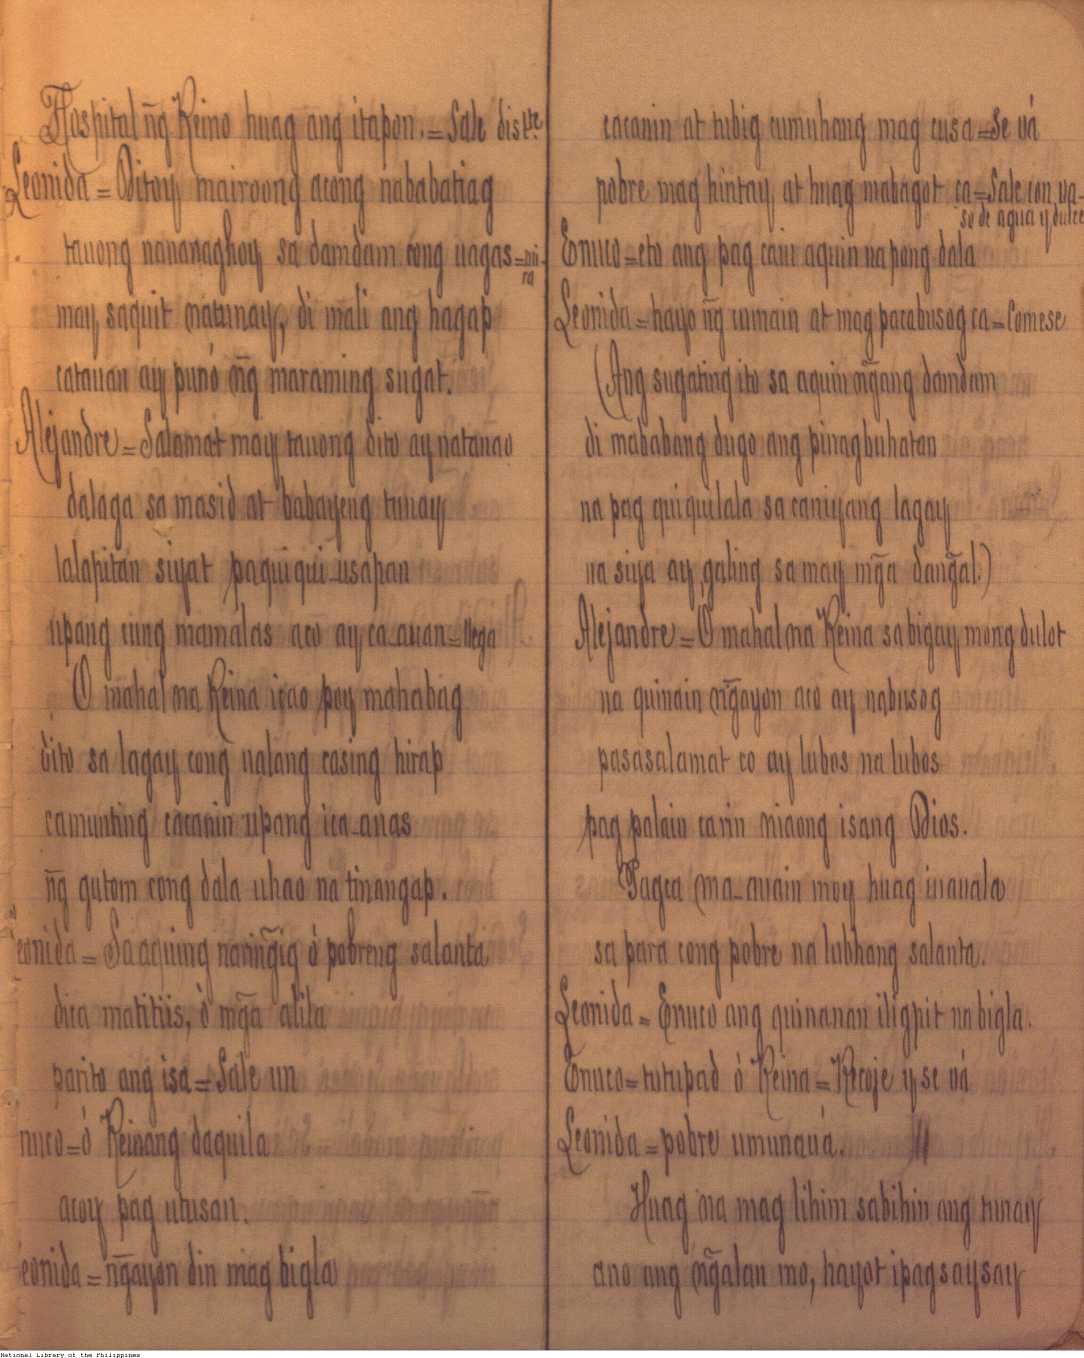 Hospital ñg Reino huag ang itapon. = Sale dis.te
Leonida = Ditoy mairoong acong nababatiag
tauong nananaghoy sa damdam cong uagas = mi-
ra
may saquit matunay, di mali ang hagap
catauan ay punó n̄g maraming sugat.
Alejandre = Salamat may tauong dito ay natanao
dalaga sa masid at babayeng tunay
lalapitan siyat paquiqui-usapan
upang cung mamalas aco ay ca-auan = llega
O mahal na Reina icao poy mahabag
dito sa lagay cong ualang casing hirap
camunting cacanin upang ica-auas
n̄g gutom cong dala uhao na tinangap.
eonida = Sa aquing narin̄gig ó pobreng salanta
dica matitiis, ò mg̃a alila
parito ang isa = Sale un
nuco = ó Reinang daquila
acoy pag utusan.
eonida = n̄gayon din mag bigla
cacanin at tubig cumuhang mag cusa = Se vá
pobre mag hintay at huag mabagot ca = Sale con va-
so de agua y dulce
Enuco = eto ang pag cain aquin na pong dala
Leonida = hayo n̄g cumain at mag pacabusog ca = Comese
(Ang sugating ito sa aquin mg̃ang damdam
di mababang dugo ang pinagbuhatan
na pag quiquilala sa caniyang lagay
na siya ay galing sa may mg̃a dang̃al.)
Alejandre = Ó mahal na Reina sa bigay mong dulot
na quinain n̄gayon aco ay nabusog
pasasalamat co ay lubos na lubos
pag palain ca rin niaong isang Dios.
Pagca ma-auain moy huag iuauala
sa para cong pobre na lubhang salanta.
Leonida = Enuco ang quinanan iligpit na bigla.
Enuco = tutupad ó Reina = Recoje y se vá
Leonida = pobre umunauá. //
Huag na mag lihim sabihin ang tunay
ano ang n̄galan mo, hayot ipagsaysay
National Library of the Philippines